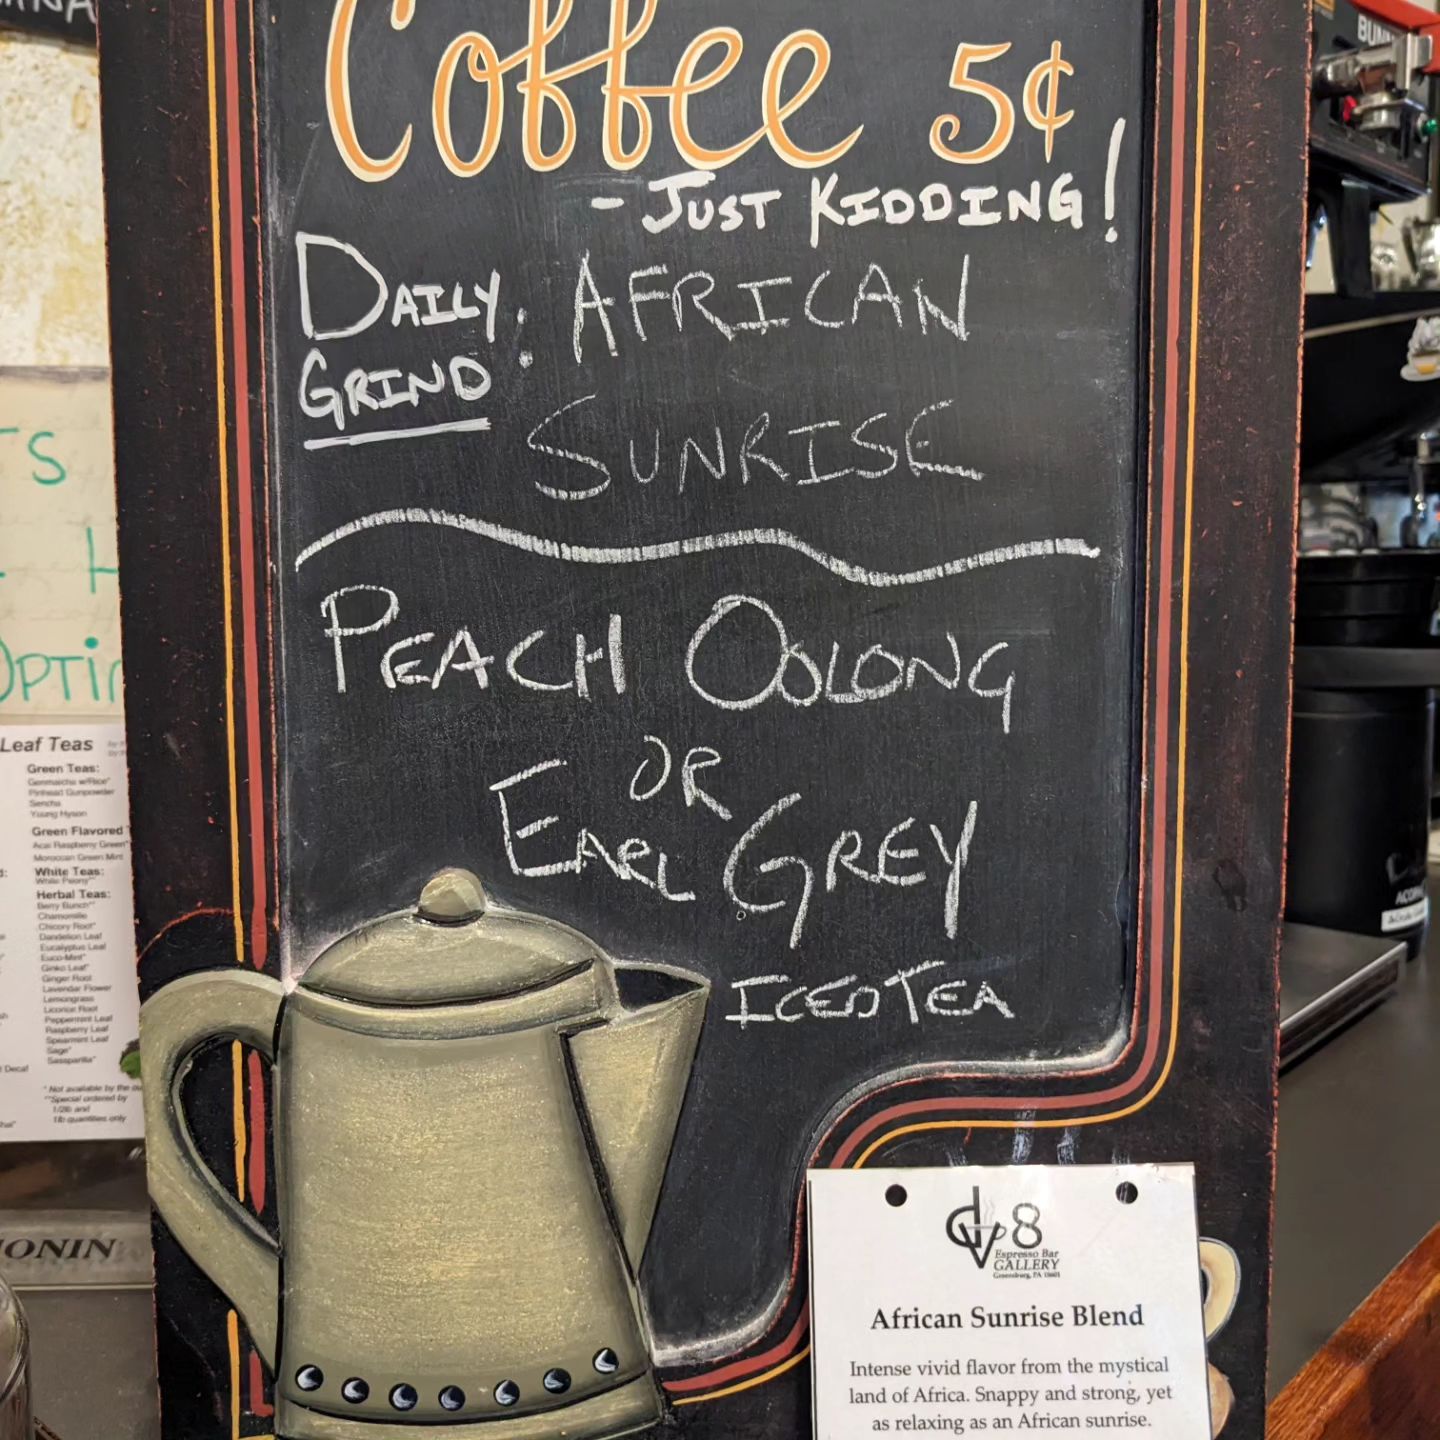 Coffee 5¢
- JUST KIDDING!
DAILY GRIND: AFRICAN
SUNRISE
PEACH OOLONG
OR
EARL GREY
ICED TEA
TS
OPTI
Leaf Teas
Green Teas:
Genmaicha w/Rice*
Pinhead Gunpowder
Sencha
Young Hyson
Green Flavored
Acai Raspberry Green*
Moroccan Green Mint
White Teas:
White Peony**
Herbal Teas:
Berry Bunch**
Chamomile
Chicory Root*
Dandelion Leaf
Eucalyptus Leaf
Euco-Mint*
Ginko Leaf*
Ginger Root
Lavendar Flower
Lemongrass
Licorice Root
Peppermint Leaf
Raspberry Leaf
Spearmint Leaf
Sage*
Sassparilla*
Decaf
* Not available by the ou
**Special ordered by
1/2lb and
1lb quantities only
ONIN
BUNN
DV8
Espresso Bar
GALLERY
Greensburg, PA 15601
African Sunrise Blend
Intense vivid flavor from the mystical
land of Africa. Snappy and strong, yet
as relaxing as an African sunrise.